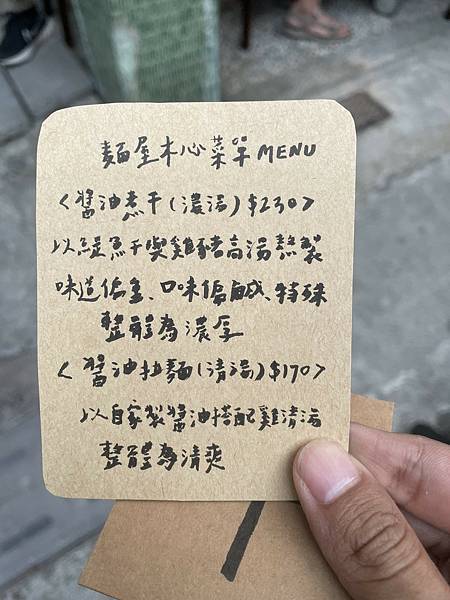 麵屋本心菜單 MENU
〈醬油煮干(濃湯)$230〉
以鯷魚干與雞豬高湯熬製
味道偏重、口味偏鹹、特殊
整體為濃厚
〈醬油拉麵(清湯)$170〉
以自家製醬油搭配雞清湯
整體為清爽